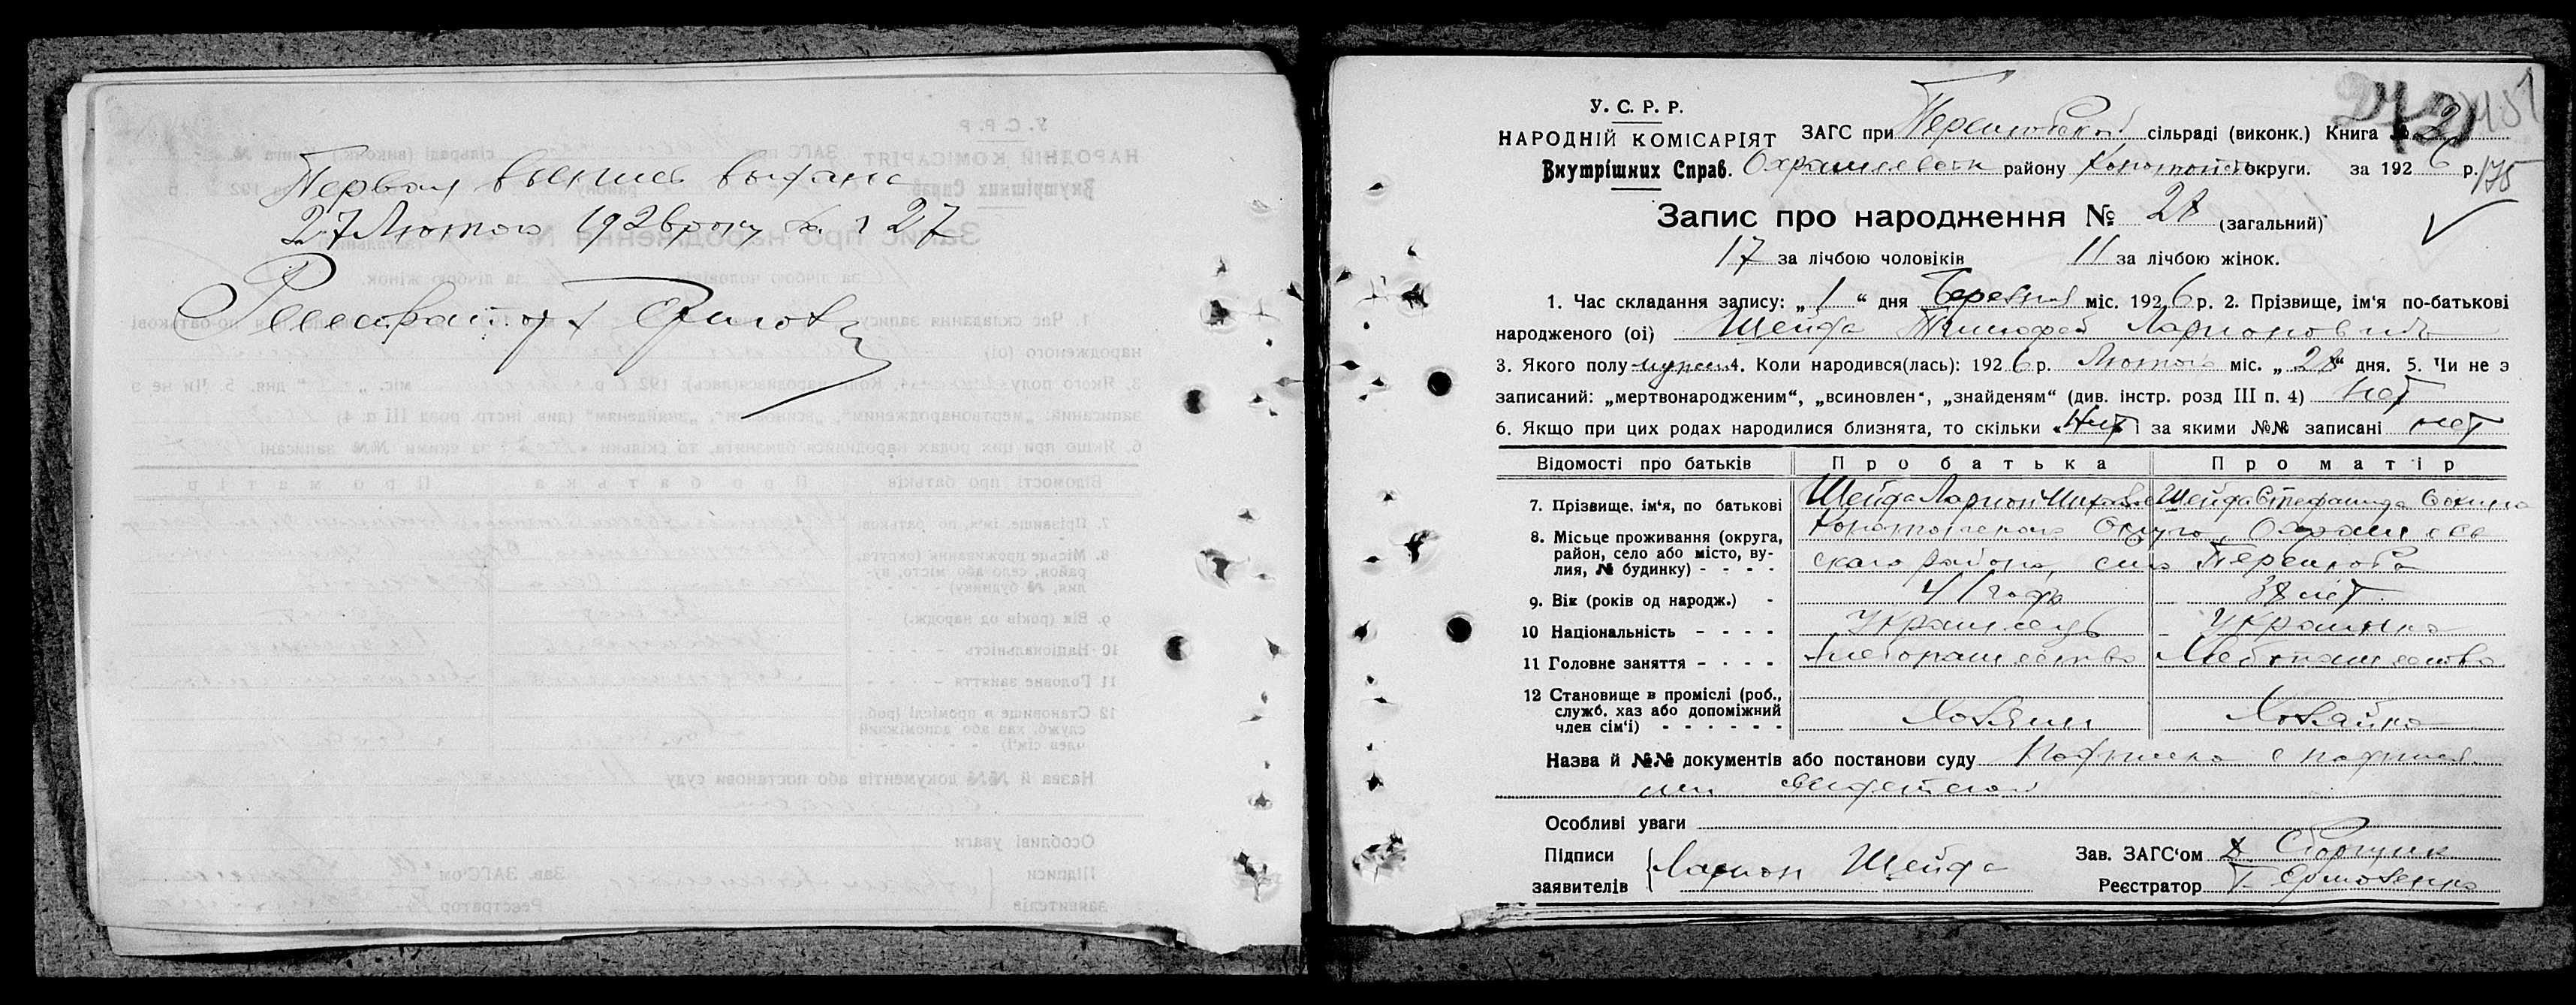 Первая выпись выдана
27 Лютого 1926 року за № 27
Реєстратор
У. С. Р. Р.
НАРОДНІЙ КОМІСАРІЯТ
Внутрішних Справ.
ЗАГС при сільраді (виконк.) Книга № 2
району Конотопськ округи. за 1926 р.
175
Запис про народження № 28 (загальний)
17 за лічбою чоловіків 11 за лічбою жінок.
1. Час складання запису: „ 1 “ дня Березня міс. 1926 р. 2. Прізвище, ім‘я по-батькові
народженого (ої) Шейда Тимофей Ларионович
3. Якого полу мужск 4. Коли народився(лась): 1926 р. Лютого міс. „ 28 “ дня. 5. Чи не э
записаний: „мертвонародженим“, „всиновлен“, „знайденям“ (див. інстр. розд III п. 4) нет
6. Якщо при цих родах народилися близнята, то скільки нет і за якими №№ записані нет
Відомості про батьків Про батька Про матір
7. Прізвище, ім‘я, по батькові Шейда Ларион Шейда Стефанида
8. Місьце проживання (округа, район, село або місто, вулия, № будинку) - - - - Конотопского Округа,
ского района, село
9. Вік (років од народж.) - 41 года 38 лет
10 Національність - - - - Украинец Украинка
11 Головне заняття - - - - Хлебопашество Хлебопашество
12 Становище в проміслі (роб., служб. хаз або допоміжний член сім‘ї) - - - - - - Хозяин Хозяйка
Назва й №№ документів або постанови суду
Особливі уваги
Підписи заявителів Ларион Шейда
Зав. ЗАГС‘ом
Реєстратор Т. Ермоленко